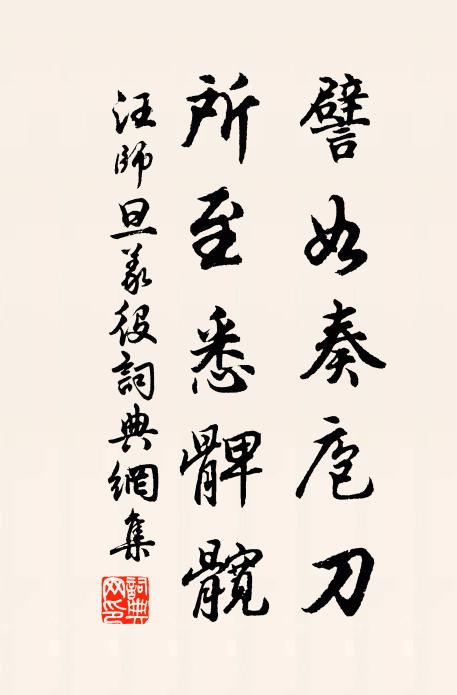 譬如奏庖刀
所至悉髀髖
汪師旦義役詞典網集
詞典網印